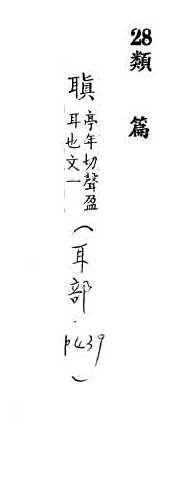 28類篇
䐜亭年切聲盈
耳也文一
（耳部．p439）